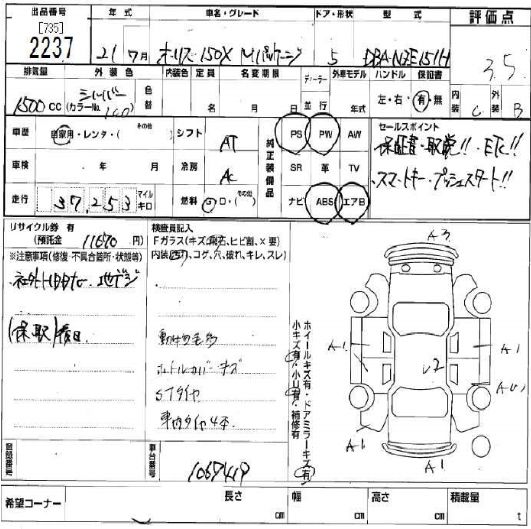 出品番号 年式 車名・グレード ドア・形状 型式 評価点
[735]
2237 21年7月 オーリス 150X Mパッケージ 5 DBA-NZE151H 3.5
排気量 外装色 内装色 定員 名変期限 ディーラー 外車モデル ハンドル 保証書 内装 外装
1500cc シルバー (カラーNo. 1C0) 色替 色 名 月 日 並行 年式 左・右・ 有・無 C B
車歴 自家用・レンタ・( その他 ) シフト AT 純正装備品 PS PW AW セールスポイント
保証書・取説!! ETC!!
車検 年 月 冷房 AC SR 革 TV
スマートキー・プッシュスタート!!
走行 37,253 マイル キロ 燃料 ・ロ・(その他) ナビ ABS エアB
リサイクル券 有 検査員記入
(預託金 11670 円) Fガラス(キズ、飛石、ヒビ割、×要)
※注意事項(修復・不具合箇所・状態等) 内装(汚れ、コゲ、穴、破れ、キレ、スレ)
社外HDDナビ、地デジ
(保、取)後日
Sタイヤ
車内タイヤ4本
ホイールキズ有・ドアミラーキズ有
小キズ有・小凹有・補修有
A3
A1 A1
A1
A1
登録番号 車台番号 1067419
希望コーナー 長さ cm 幅 cm 高さ cm 積載量 t